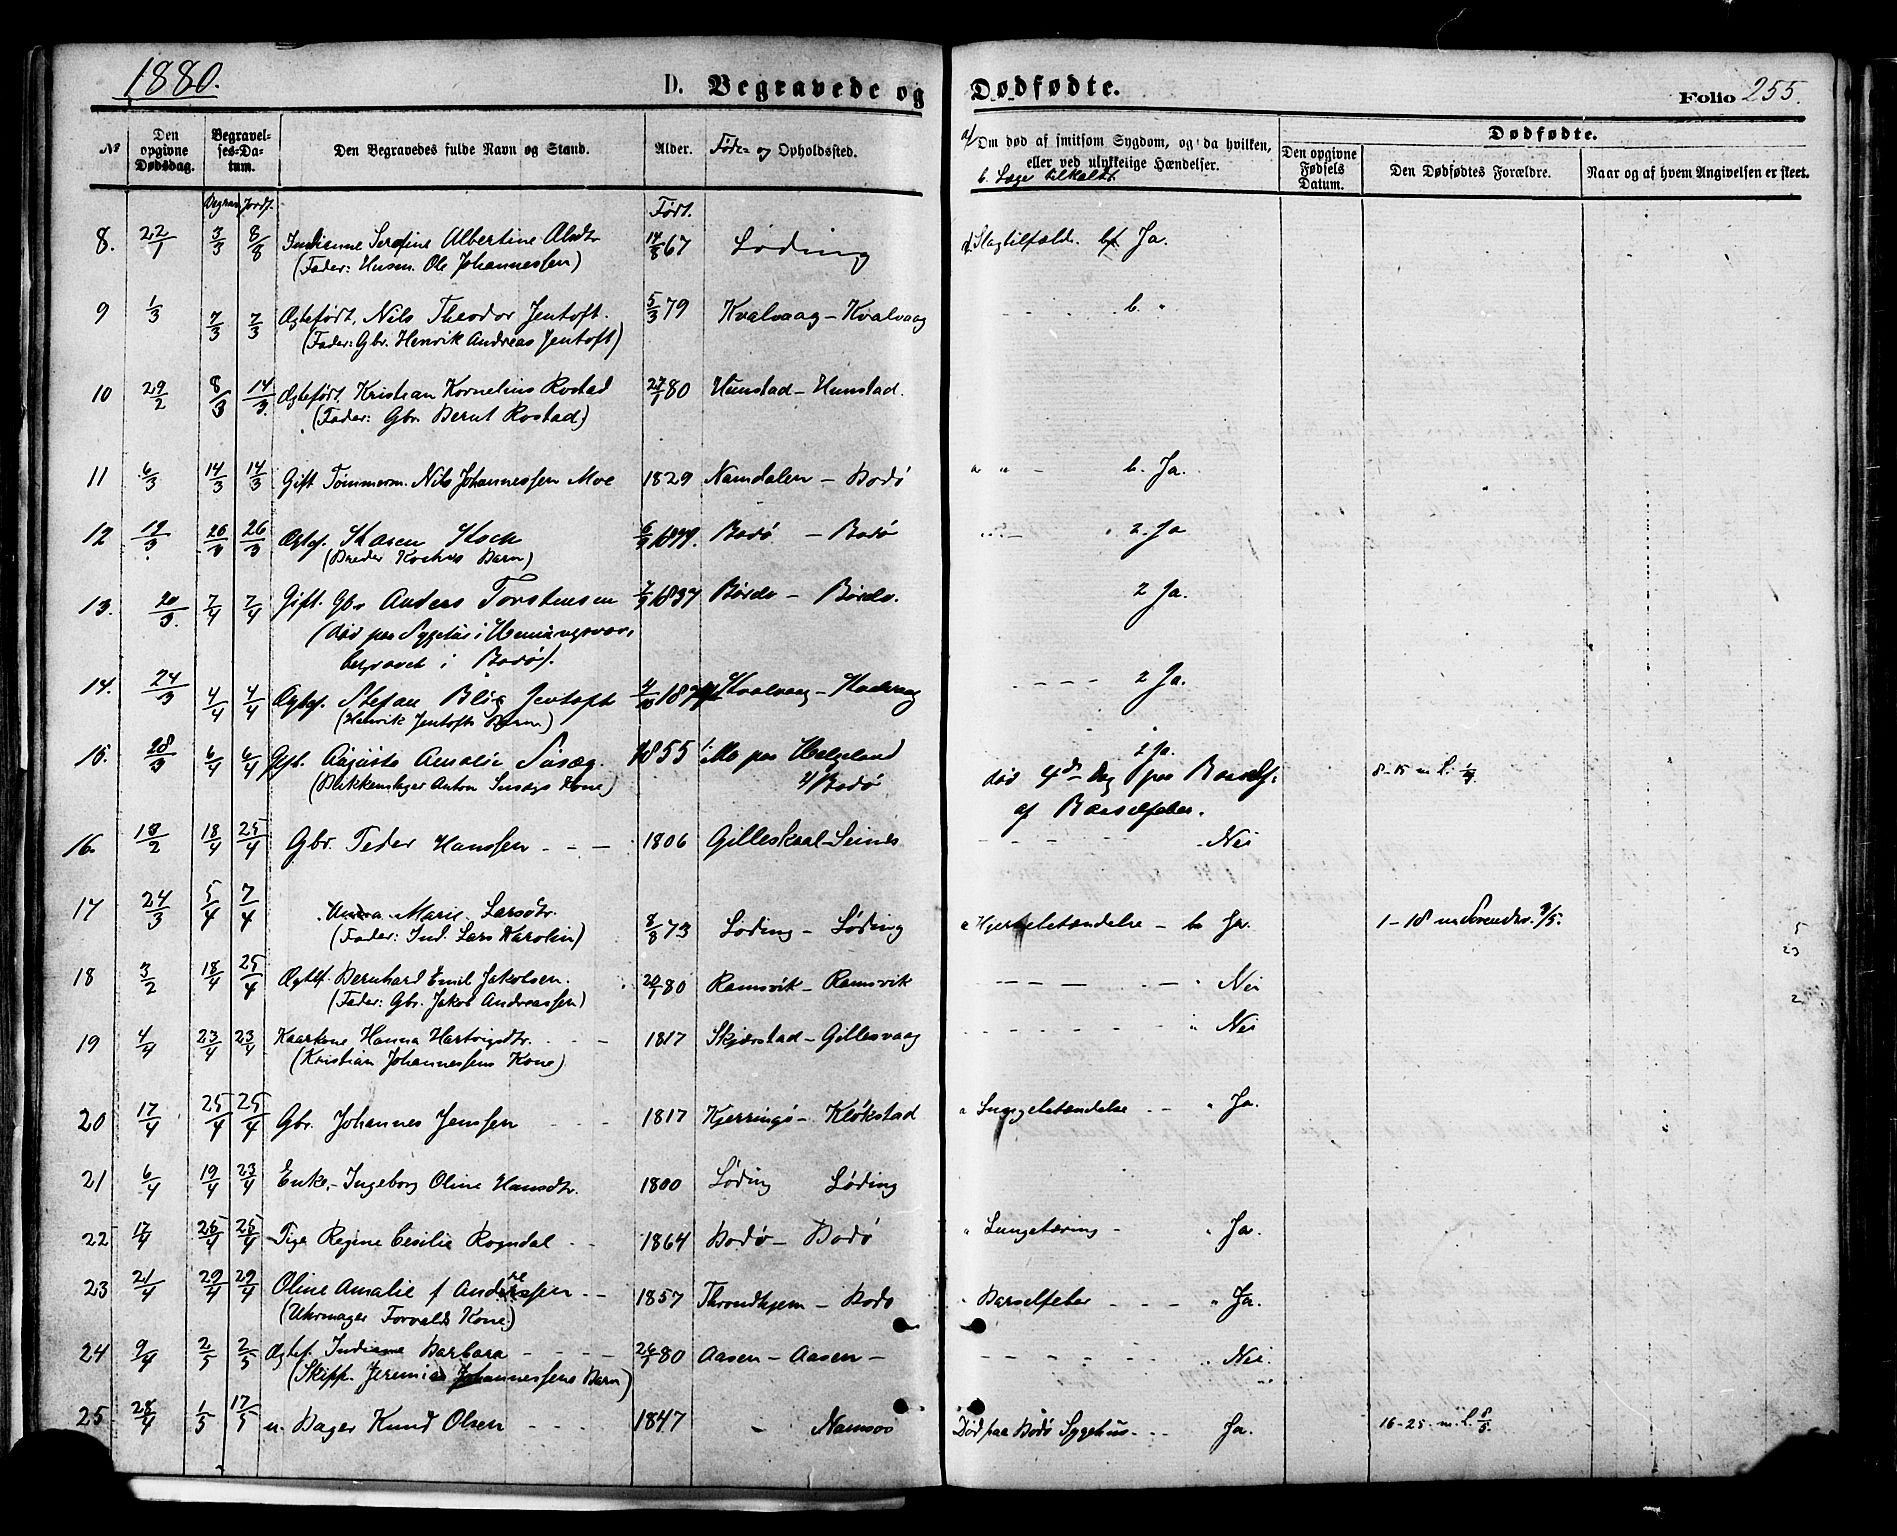 1880. D. Begravede og Dødfødte. Folio 255.
No Den opgivne Dødsdag. Begravelses-Datum. Den Begravedes fulde Navn og Stand. Alder. Føde- og Opholdssted. a/ Om død af smitsom Sygdom, og da hvilken, eller ved ulykkelige Hændelser. b. Læge tilkaldt Den opgivne Fødsels Datum. Dødfødte. Den Dødfødtes Forældre. Naar og af hvem Angivelsen er skeet.
Begrav. Jordf. Født.
8. 22/1 3/3 8/3 Indianne Serafine Albertine Olsdtr 14/8 67 Løding a/ Slagtilfælde. b/ Ja.
(Fader: Husm. Ole Johannessen)
9 1/3 7/3 7/3 Ægtefødt, Nils Theodor Jentoft. 5/3 79 Kvalvaag – Kvalvaag b. "
(Fader: Gbr. Henrik Andreas Jentoft)
10 29/2 8/3 14/3. Ægtefødt. Kristian Kornelius Rostad 27/1 80 Hunstad – Hunstad.
(Fader: Gbr. Bernt Rostad)
11 6/3 14/3 14/3 Gift Tømmerm. Nils Johannessen Moe 1829 Namdalen – Bodø a " – b. Ja.
12 19/3 26/3 26/3 Ægtef. 1879. Bodø – Bodø 2. Ja
13. 20/3. 7/4 7/4 Gift. Gbr Anders Torstensen 7/9 1837 2 Ja.
(død paa Sygehus i Henningsvær,
begravet i Bodø).
14. 24/3 4/4 4/4 Ægtef. Stefan Blix Jentoft 4/10 Kvalvaag – Kvalvaag 2 Ja.
(Henrik Jentofts Barn)
15. 28/3 6/4 6/4 Gift. Augusta Amalie Susæg 1855 1/ Mo paa Helgeland 2 Ja.
(Blikkenslager Anton Susægs Kone) 2/ Bodø død 4de Dag paa Barsels. 8–15 m l. 1/4.
af Barselfeber.
16. 18/2 18/4 25/4 Gbr. Peder Hanssen – – – 1806 Gilleskaal – Seines – – – – Nei
17 24/3 5/4 7/4 Anna Marie Larsdtr. 8/8 73 Løding – Løding a Hjernebetændelse – b Ja. 1–18 m Svendsv. 9/5. 5
(Fader: Ind. Lars Karolin) 23
18 3/2 18/4 25/4 Ægtef. Bernhard Emil Jakobsen. 20/1 80 Ramsvik – Ramsvik – – – – " Nei
(Fader: Gbr. Jakob Andreassen) 2
19 4/4 23/4 23/4 Kaarkone Hanna Hartvigsdtr. – – – 1817 Skjærstad – Gillesvaag – – – – " Nei
(Kristian Johannessens Kone)
20 17/4 25/4 25/4 Gbr. Johannes Jenssen – – – 1817 Kjerringø – Kløkstad a Lungebetændelse – – " Ja.
21 6/4 19/4 23/4 Enke, – Ingeborg Oline Hansdtr. 1800 Løding Løding
22 17/4 26/4 26/4 Pige Regine Cesilie Rogndal – – 1864 Bodø – Bodø " Lungetæring – " Ja.
23 21/4 29/4 29/4 Oline Amalie f Andreassen – – 1857 Throndhjem – Bodø " Barselfeber – – – " Ja.
(Uhrmager Forvalds Kone)
24 9/4 2/5 2/5 Ægtef. Indianne Barbara – – – – 26/1 80 Aasen – Aasen – – – – – " Nei.
(Skipp. Jeremias Johannessens Barn)
25. 28/4 1/5 17/5 u. Bager Knud Olsen – – – 1847 – Namsos Død paa Bodø Sygehus – – – Ja. 16–25. m. l. 8/5.